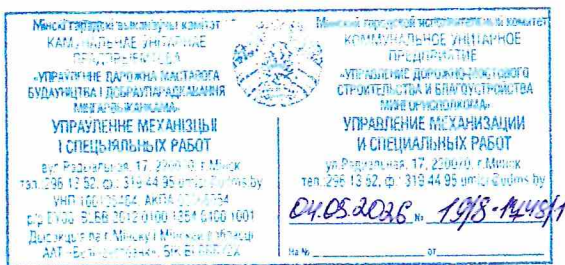 Мінскі гарадскі выканаўчы камітэт
КАМУНАЛЬНАЕ УНІТАРНАЕ
ПРАДПРЫЕМСТВА
«УПРАЎЛЕННЕ ДАРОЖНА-МАСТАВОГА
БУДАЎНІЦТВА І ДОБРАЎПАРАДКАВАННЯ
МІНГАРВЫКАНКАМА»
УПРАЎЛЕННЕ МЕХАНІЗЦЫІ
І СПЕЦЫЯЛЬНЫХ РАБОТ
вул. Радыяльная, 17, 220070, г. Мінск
тэл. 296 13 52, ф.: 319 44 95
УНП
р/р
Дырэкцыя па г. Мінску і Мінскай вобласці
ААТ
Минский городской исполнительный комитет
КОММУНАЛЬНОЕ УНИТАРНОЕ
ПРЕДПРИЯТИЕ
«УПРАВЛЕНИЕ ДОРОЖНО-МОСТОВОГО
СТРОИТЕЛЬСТВА И БЛАГОУСТРОЙСТВА
МИНГОРИСПОЛКОМА»
УПРАВЛЕНИЕ МЕХАНИЗАЦИИ
И СПЕЦИАЛЬНЫХ РАБОТ
ул. Радиальная, 17, 220070, г. Минск
тел. 296 13 52, ф.: 319 44 95
04.05.2026 № 19/8-1748/1
На № от